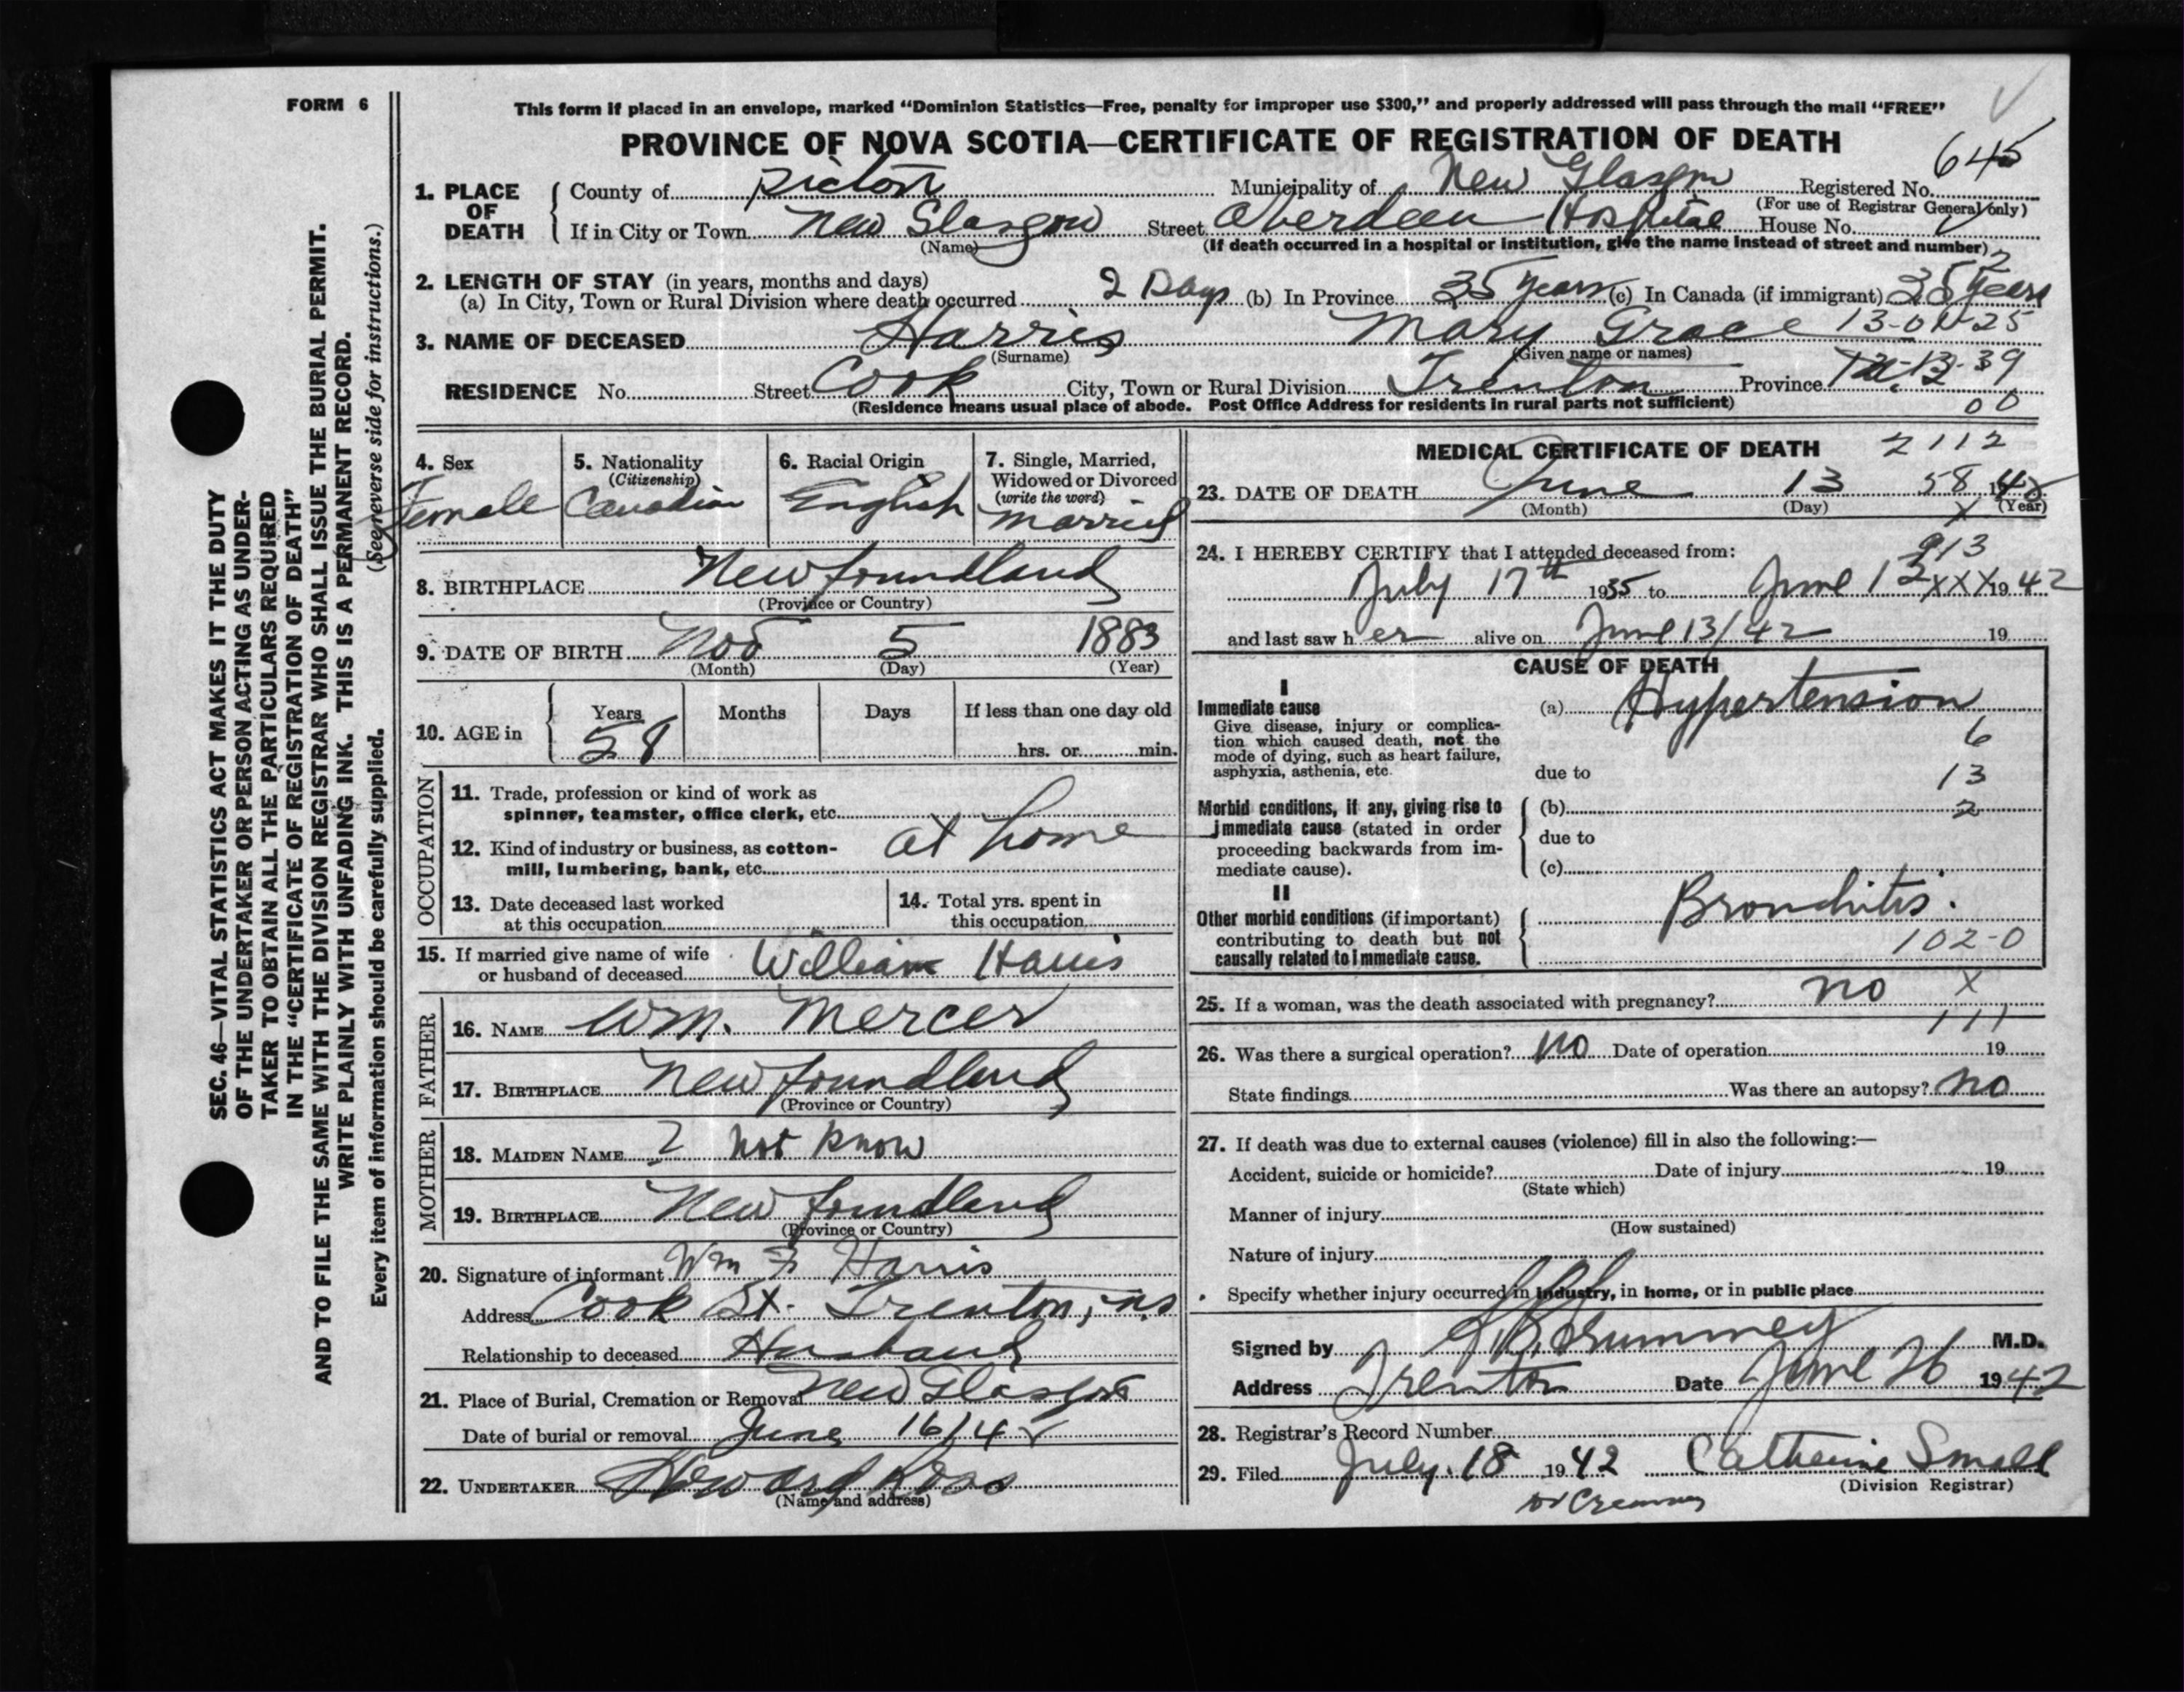 FORM 6
This form if placed in an envelope, marked “Dominion Statistics—Free, penalty for improper use $300,” and properly addressed will pass through the mail “FREE”
PROVINCE OF NOVA SCOTIA—CERTIFICATE OF REGISTRATION OF DEATH
645
1. PLACE OF DEATH County of Pictou Municipality of New Glasgow Registered No.
(For use of Registrar General only)
If in City or Town New Glasgow Street Aberdeen Hospital House No.
(Name) (If death occurred in a hospital or institution, give the name instead of street and number)
2. LENGTH OF STAY (in years, months and days)
(a) In City, Town or Rural Division where death occurred 2 Days (b) In Province 35 years (c) In Canada (if immigrant) 35 years
3. NAME OF DECEASED Harris Mary Grace
(Surname) (Given name or names)
RESIDENCE No. Street Cook City, Town or Rural Division Trenton Province
(Residence means usual place of abode. Post Office Address for residents in rural parts not sufficient)
00
4. Sex Female
5. Nationality (Citizenship) Canadian
6. Racial Origin English
7. Single, Married, Widowed or Divorced (write the word) Married
8. BIRTHPLACE Newfoundland
(Province or Country)
9. DATE OF BIRTH Nov 5 1883
(Month) (Day) (Year)
10. AGE in Years 58 Months Days If less than one day old
hrs. or min.
OCCUPATION
11. Trade, profession or kind of work as
spinner, teamster, office clerk, etc.
at home
12. Kind of industry or business, as cotton-
mill, lumbering, bank, etc.
13. Date deceased last worked
at this occupation
14. Total yrs. spent in
this occupation
15. If married give name of wife
or husband of deceased William Harris
FATHER
16. NAME Wm. Mercer
17. BIRTHPLACE Newfoundland
(Province or Country)
MOTHER
18. MAIDEN NAME ? not know
19. BIRTHPLACE Newfoundland
(Province or Country)
20. Signature of informant Wm F Harris
Address Cook St. Trenton, N.S
Relationship to deceased Husband
21. Place of Burial, Cremation or Removal New Glasgow
Date of burial or removal June 16/42
22. UNDERTAKER Howard Ross
(Name and address)
MEDICAL CERTIFICATE OF DEATH 2112
23. DATE OF DEATH June 13 58
(Month) (Day) (Year)
24. I HEREBY CERTIFY that I attended deceased from:
913
July 17th 1935 to June 13 XXX 19 42
and last saw her alive on June 13/42 19
CAUSE OF DEATH
I
Immediate cause (a) Hypertension
Give disease, injury or complica-
tion which caused death, not the
mode of dying, such as heart failure,
asphyxia, asthenia, etc.
6
due to 13
Morbid conditions, if any, giving rise to (b) 2
immediate cause (stated in order due to
proceeding backwards from im-
mediate cause). (c)
II
Other morbid conditions (if important) Bronchitis.
contributing to death but not 102-0
causally related to immediate cause.
25. If a woman, was the death associated with pregnancy? no X
111
26. Was there a surgical operation? no Date of operation 19
State findings Was there an autopsy? no
27. If death was due to external causes (violence) fill in also the following:—
Accident, suicide or homicide? Date of injury 19
(State which)
Manner of injury
(How sustained)
Nature of injury
Specify whether injury occurred in industry, in home, or in public place
Signed by M.D.
Address Trenton Date June 26 1942
28. Registrar's Record Number
29. Filed July 18 1942 Catherine Small
(Division Registrar)
SEC. 46—VITAL STATISTICS ACT MAKES IT THE DUTY
OF THE UNDERTAKER OR PERSON ACTING AS UNDER-
TAKER TO OBTAIN ALL THE PARTICULARS REQUIRED
IN THE “CERTIFICATE OF REGISTRATION OF DEATH”
AND TO FILE THE SAME WITH THE DIVISION REGISTRAR WHO SHALL ISSUE THE BURIAL PERMIT.
WRITE PLAINLY WITH UNFADING INK. THIS IS A PERMANENT RECORD.
Every item of information should be carefully supplied. (See reverse side for instructions.)